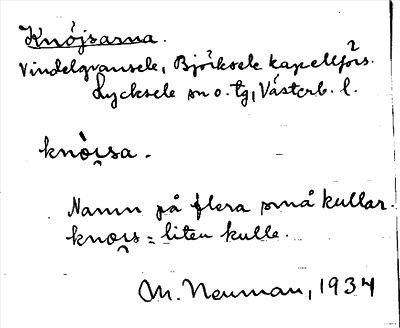 Knöjsarna.
Vindelgransele, Björksele kapellförs.
Lycksele sn o. tg, Västerb. l.
knòi̯sa.
Namn på flera små kullar.
knoi̯s = liten kulle.
M. Neuman, 1934